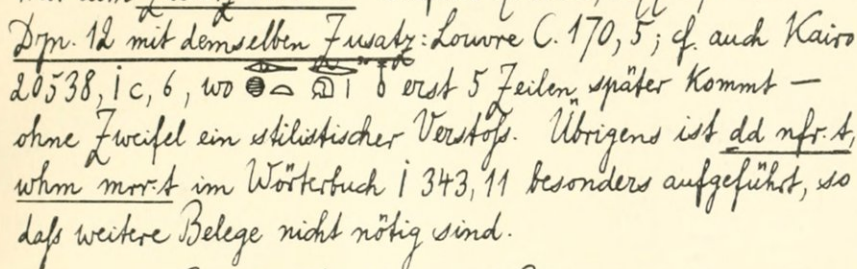 Dyn. 12 mit demselben Zusatz: Louvre C. 170, 5; cf. auch Kairo
20538, I c, 6, wo erst 5 Zeilen später kommt —
ohne Zweifel ein stilistischer Verstoß. Übrigens ist dd nfr.t,
whm mrr.t im Wörterbuch I 343, 11 besonders aufgeführt, so
daß weitere Belege nicht nötig sind.